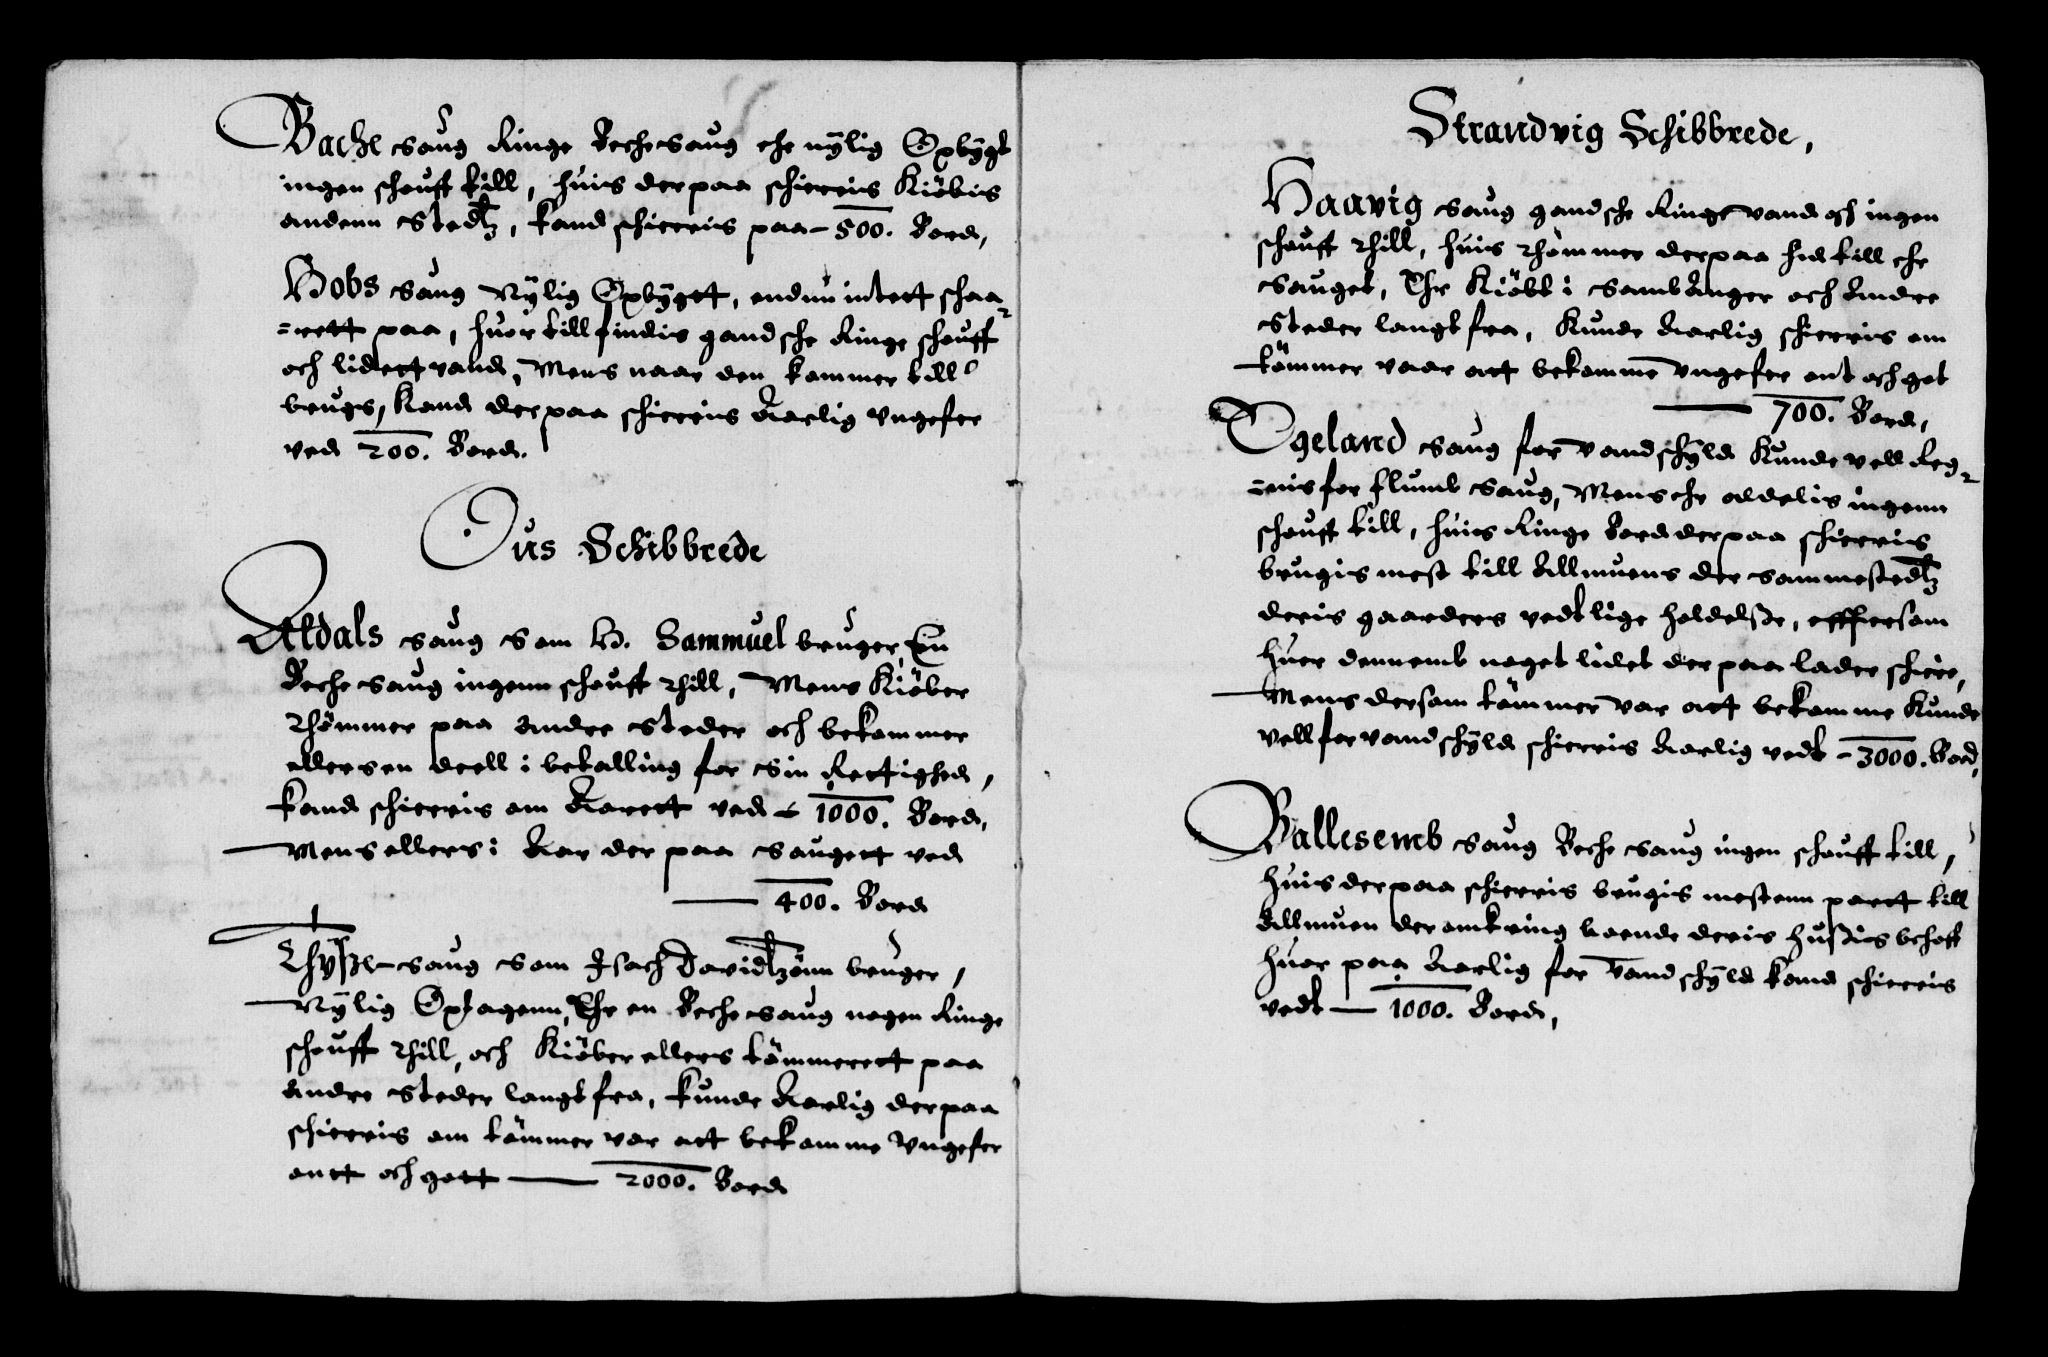 Bache saug Ringe Beche saug ehr nÿlig Opbÿgt
ingen schouff till, huis der paa schierris Kiöbis
andenn stedtz, kand schierris paa - 500. Bord,
Hobs saug Nÿlig Opbÿgtt, endnu intett schaa
=rett paa, huor till findis gandsche Ringe schouff
och lidett vand, Mens naar den kommer till
brugs, Kand der paa schierris Aarlig vngefer
ved 200. Bord.
Ous Schibbrede
Aldals saug som H. Sammuel bruger, En
Beche saug ingenn schouff thill, Mens Kiöber
thömmer paa andre steder och bekommer
ellers en deell i betalling for sin Rettighed,
kand schierris om Aarett ved - 1000. Bord,
Mens ellers i Aar der paa saugett ved
400. Bord
Thysse saug som Isach Davidtzönn bruger,
Nÿlig Optagenn, Ehr en Beche saug nogen Ringe
schouff thill, och Kiöber ellers tömmerett paa
andre steder langt fra, kunde Aarlig der paa
schierris om tömmer var att bekomme vngefer
ontt och gott 2000. Bord
Strandvig Schibbrede,
Haavig saug gandsche Ringe vand och ingen
schouff thill, huis thömmer der paa hid till ehr
sauget, Ehr Kiöbt i Samdanger och Andre
steder langt fra, Kunde Aarlig schierris om
tömmer vaar att bekomme vngefer ont och got
700. Bord,
Egeland saug for vandschÿld Kunde vell Reg
=nis for flumb saug, Mens ehr aldelis ingenn
schouff till, huis Ringe bord der paa schierris
brugis mest till Allmuens der sammestedtz
deris gaarders vedtlige holdelse, effttersom
huer dennemb noget lidet der paa lader schiere,
Mens dersom tömmer var att bekomme Kunde
vell for vandschÿld schierris Aarlig vedt - 3000. Bord,
Ballesemb saug Beche saug ingen schouff till,
huis der paa schierris brugis mestenn partt till
Allmuen der omkring boende deris hussis behoff
huor paa Aarlig for vandschÿld kand schierris
vedt - 1000. Bord,